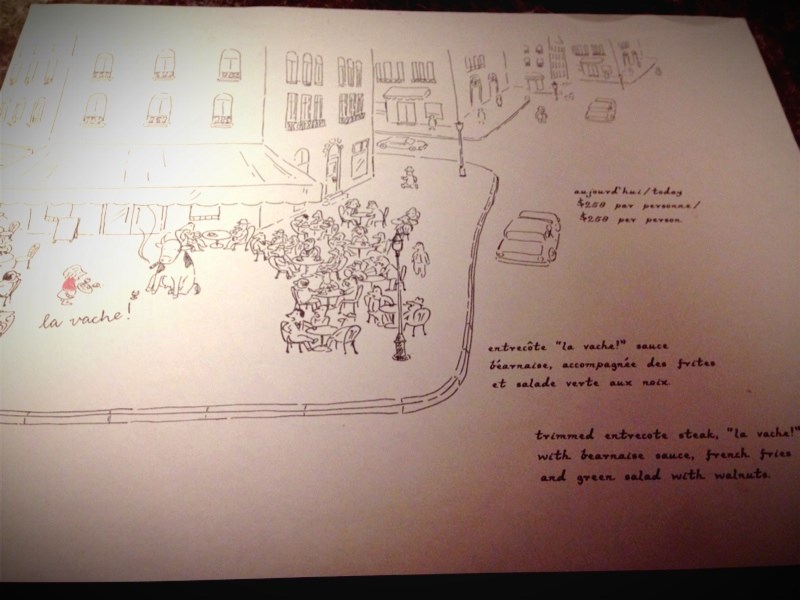 aujourd'hui/today
$250 par personne/
$250 per person
la vache!
entrecôte "la vache!" sauce
béarnaise, accompagnée des frites
et salade verte aux noix.
trimmed entrecote steak, "la vache!"
with bearnaise sauce, french fries
and green salad with walnuts.